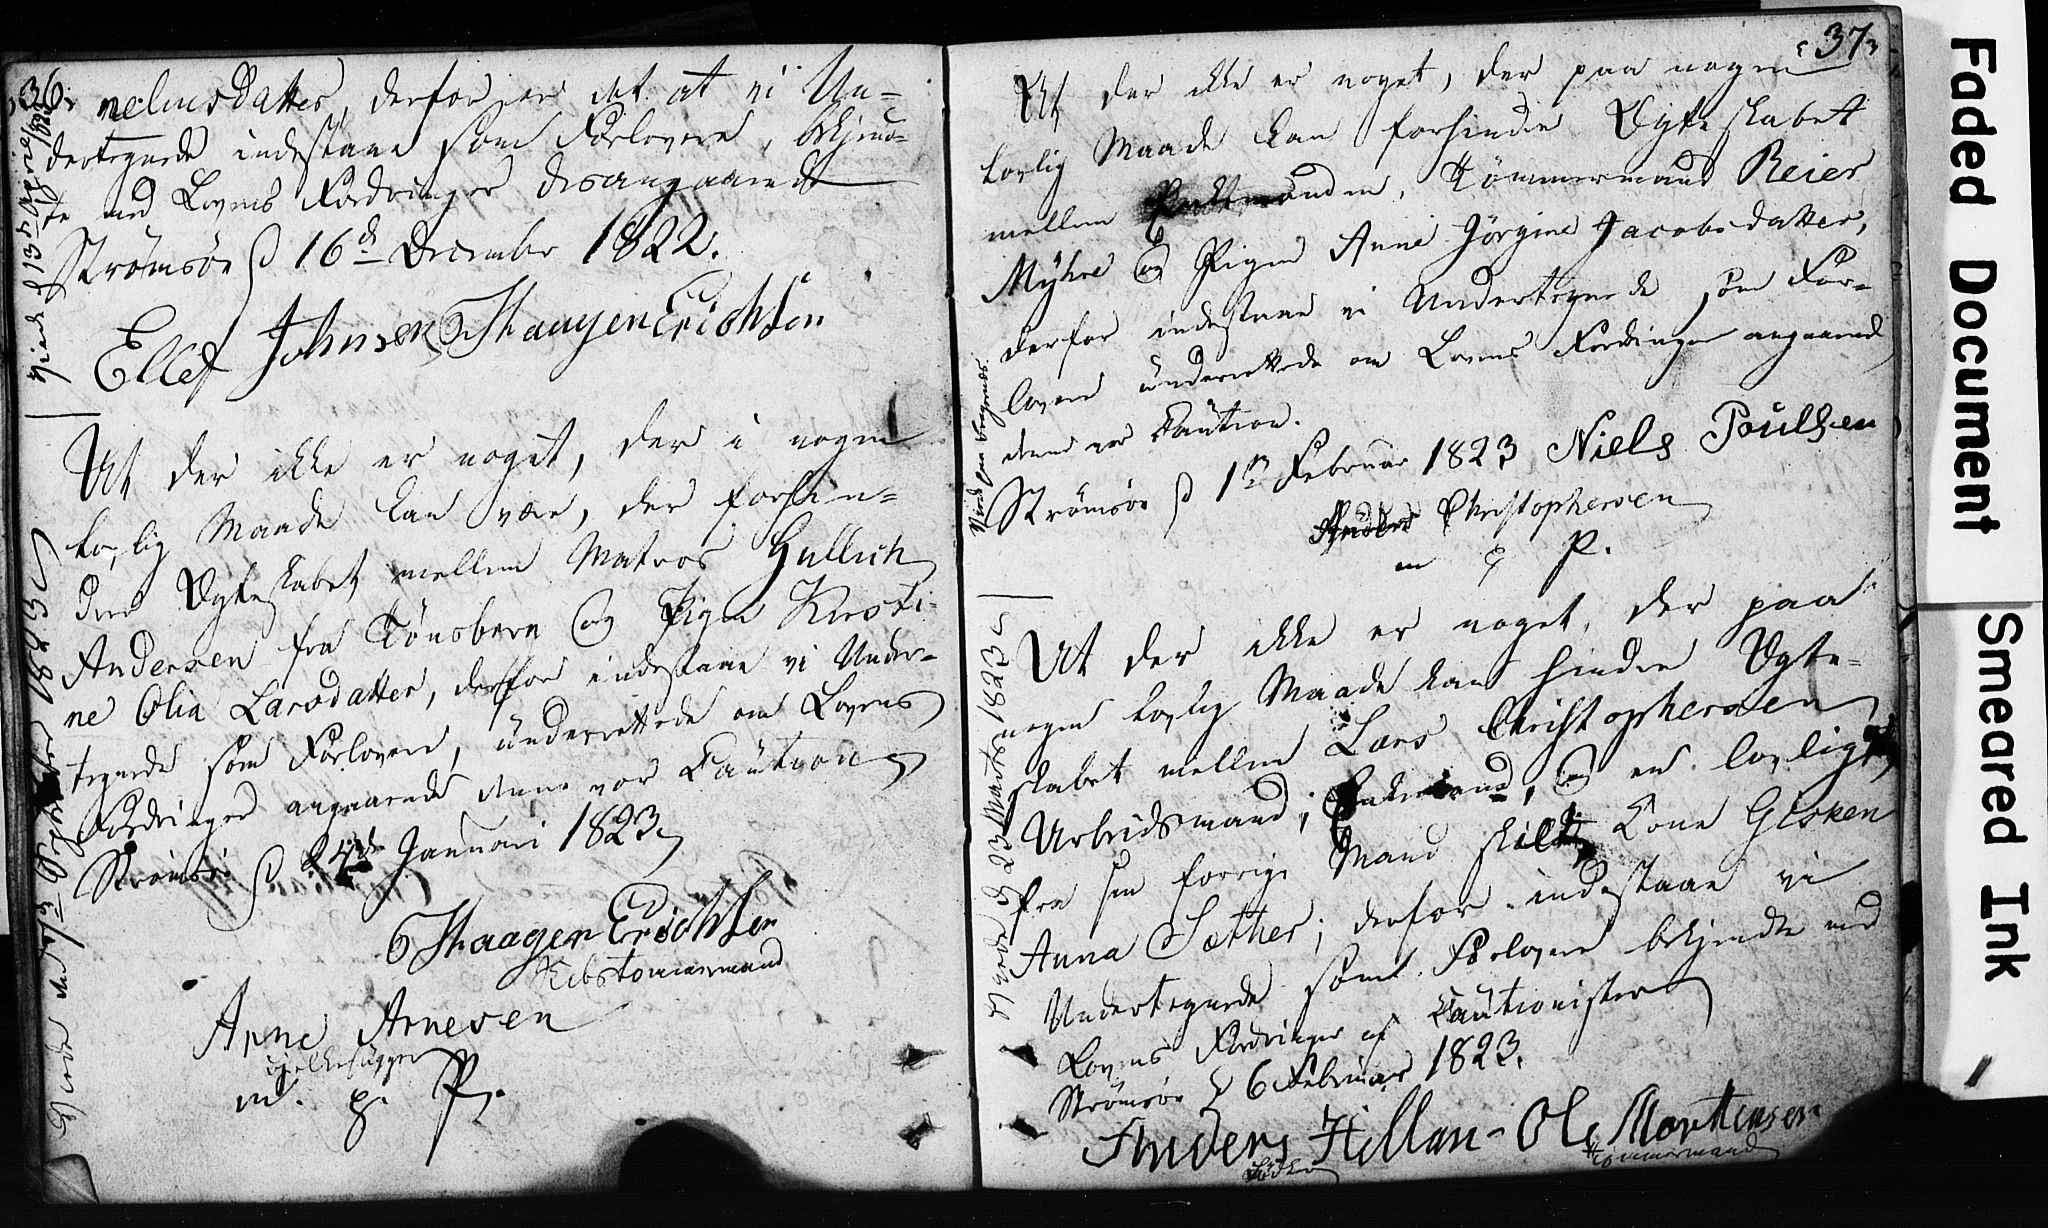 36
neliusdatter, derfor er det at vi Un=
dertegnede indestaae som Forlovere, bekjend-
te med Lovens Fordringer desangaaende
Strømsøe d 16de December 1822.
Ellef Johnsen Haagen Erichsen
viede d 13de April 1823
At der ikke er noget, der i nogen
lovlig Maade kan være, der forhin=
drer Ægteskabet mellem Matros Gullich
Andersen fra Tønsberg og Pigen Kirsti-
ne Olia Larsdatter, derfor indestaae vi Under-
tegnede som Forlovere, underrettede om Lovens
Fordringer angaaende denne vor Caution
Strømsø d 24de Januari 1823
Haagen Erichsen
Arne Arnesen
m. p. P.
37
At der ikke er noget, der paa nogen
lovlig Maade kan forhindre Ægteskabet
mellem Enkemanden, Tømmermand Reier
Myhre og Pigen Anne Jørgine Jacobsdatter,
derfor indestaae vi Undertegnede som For-
lovere underrettede om Lovens Fordringer angaaende
denne vor Caution.
Strømsøe d 1ste Februar 1823 Niels Poulsen
Anders Christophersen
m p P.
Viede paa Bragernes.
At der ikke er noget, der paa
nogen lovlig Maade kan hindre Ægte-
skabet mellem Lars Christophersen
Arbeidsmand, Enkemand, og en lovlig
fra sin forrige Mand skilt Kone Gisken
Anna Sæther; derfor indestaae vi
Undertegnede som Forlovere bekjendte med
Lovens Fordringer af Cautionister
Strømsøe d 6 Februar 1823.
Anders Hillan - Ole Morttensen
Tømmermand
Viede d 23 Marts 1823
Faded Document
Smeared Ink